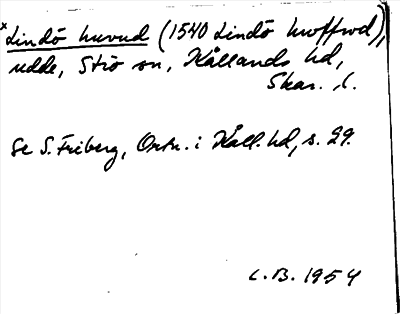 *Lindö huvud (1540 Lindö hwffwd),
udde, Strö sn, Kållands hd,
Skar. l.
Se S. Friberg, Ortn. i Kåll. hd, s. 29.
C.B. 1954